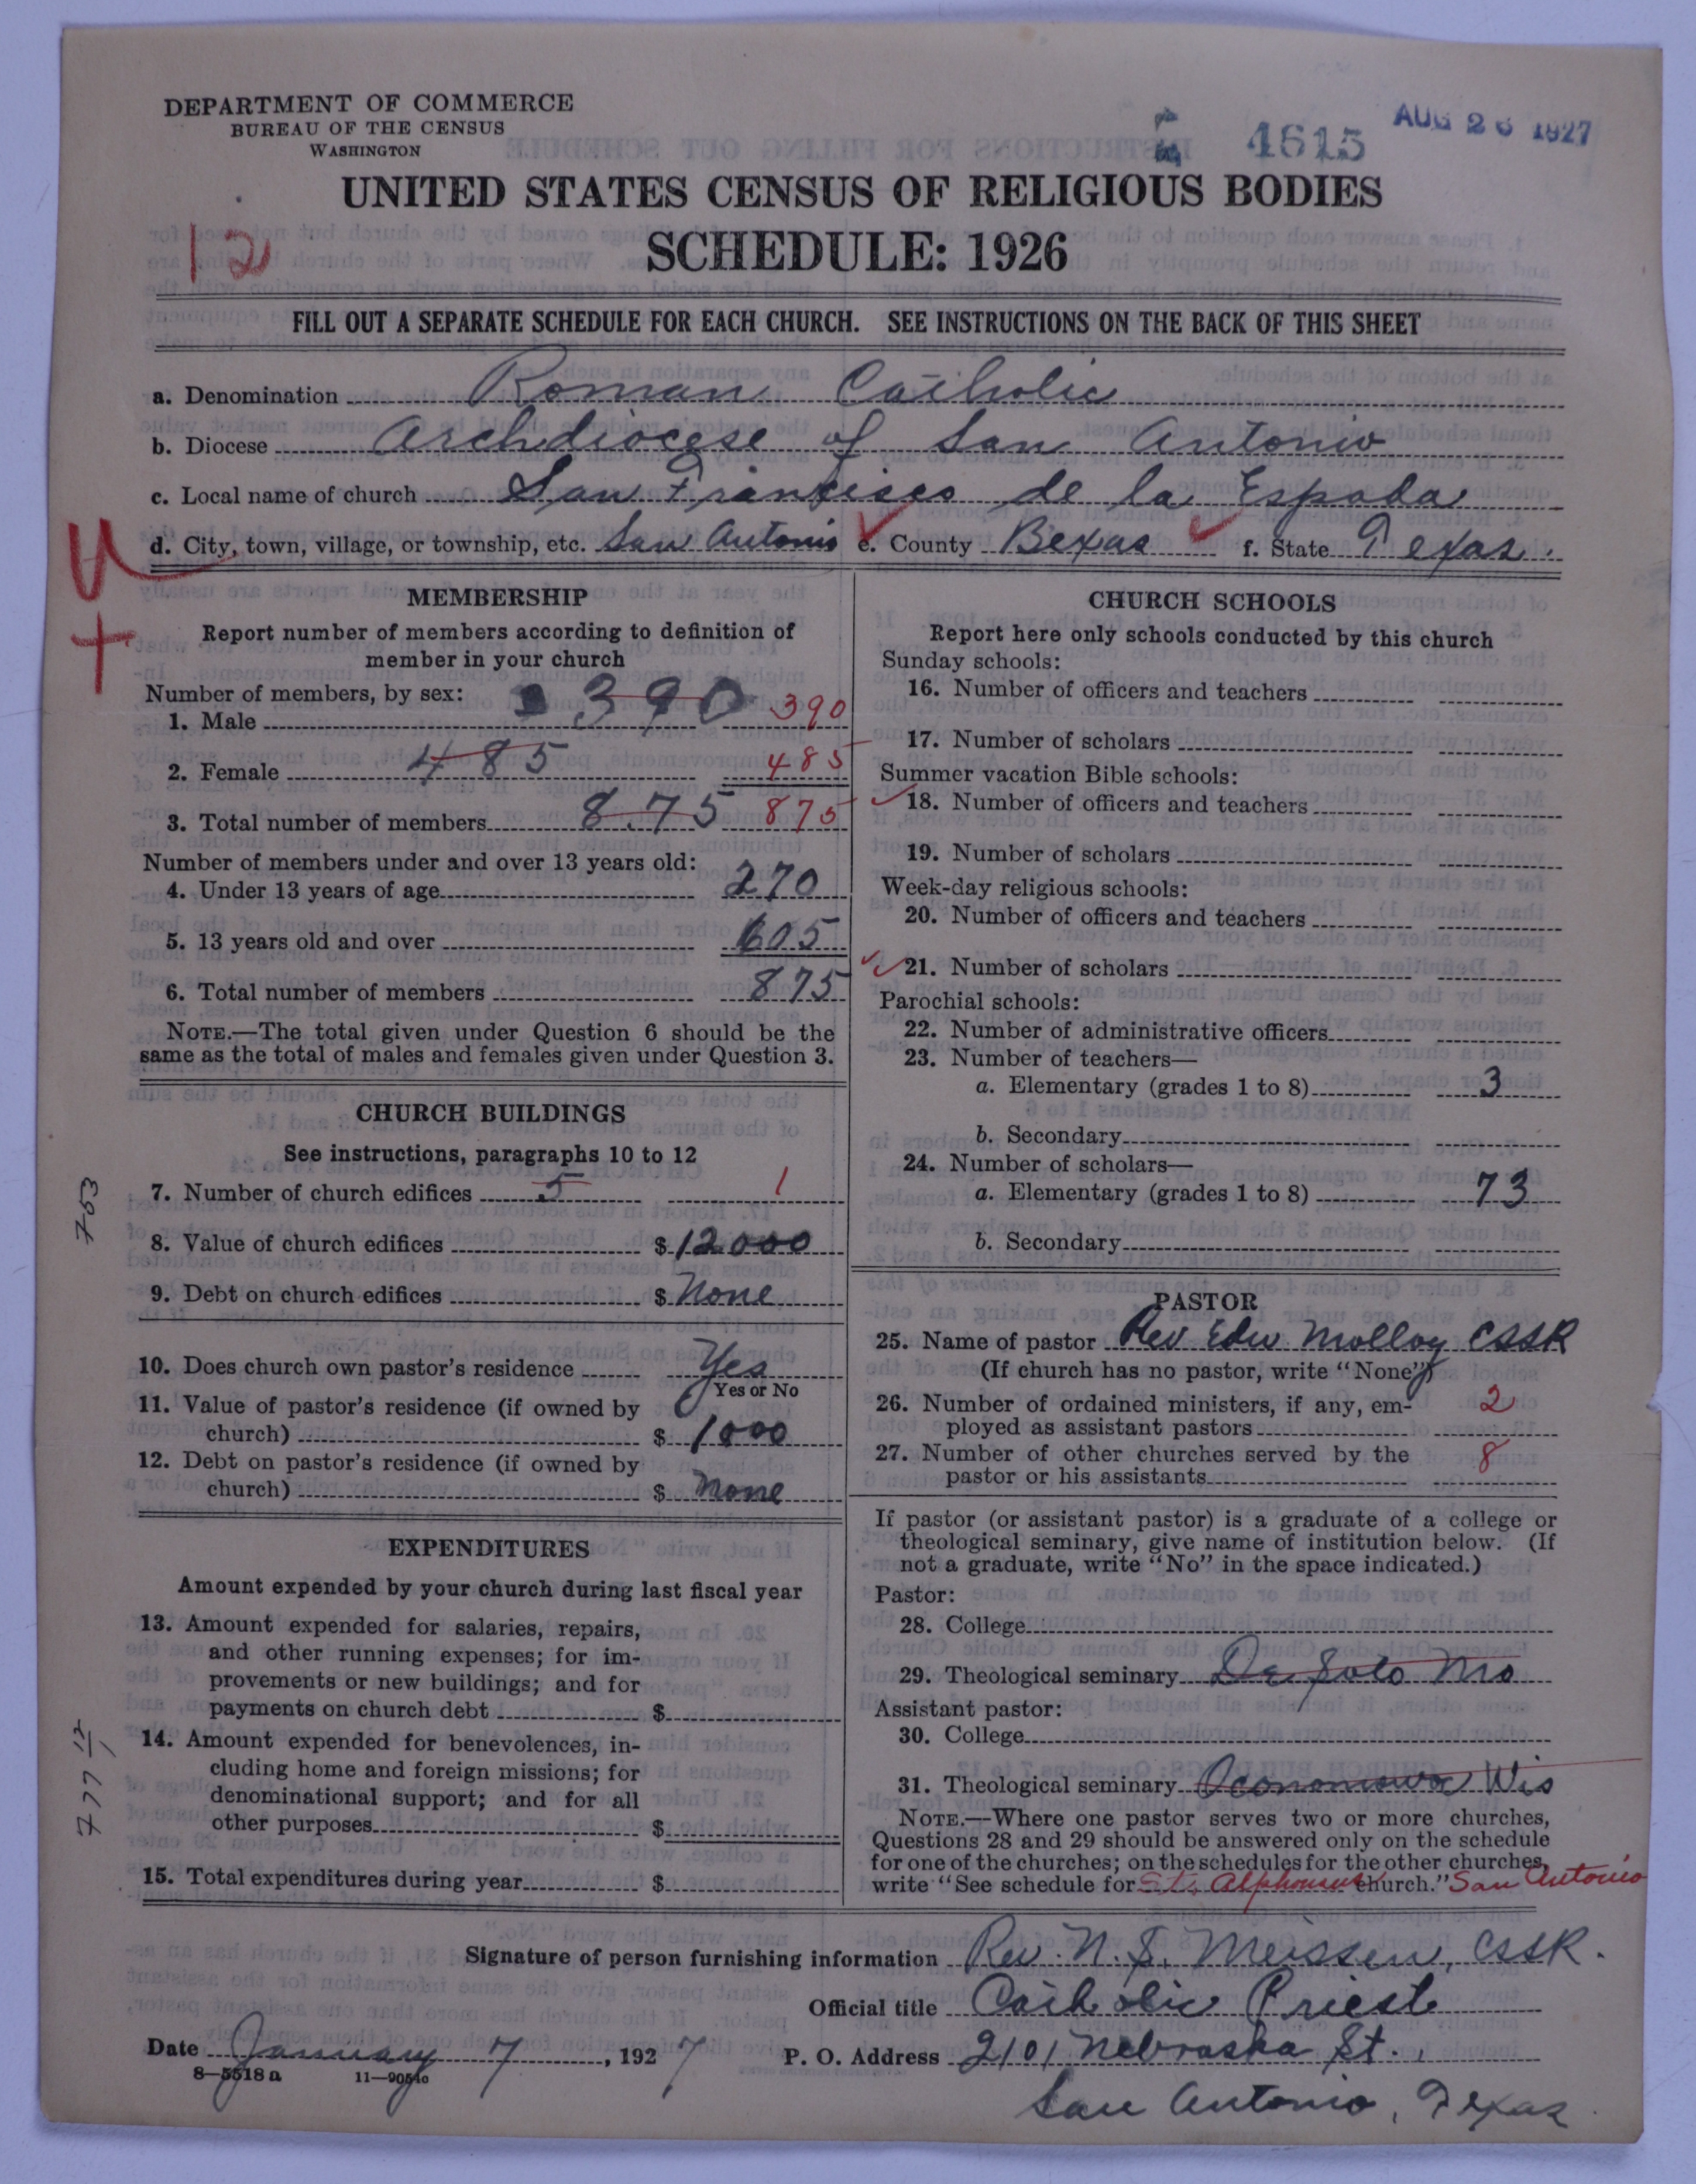 DEPARTMENT OF COMMERCE
BUREAU OF THE CENSUS
WASHINGTON
4615
AUG 26 1927
UNITED STATES CENSUS OF RELIGIOUS BODIES
12
SCHEDULE: 1926
FILL OUT A SEPARATE SCHEDULE FOR EACH CHURCH. SEE INSTRUCTIONS ON THE BACK OF THIS SHEET
a. Denomination Roman Catholic
b. Diocese Archdiocese of San Antonio
c. Local name of church San Francisco de la Espada
d. City, town, village, or township, etc. San Antonio e. County Bexar f. State Texas.
MEMBERSHIP
Report number of members according to definition of
member in your church
Number of members, by sex:
1. Male 390 390
2. Female 485 485
3. Total number of members 875 875
Number of members under and over 13 years old:
4. Under 13 years of age 270
5. 13 years old and over 605
6. Total number of members 875
NOTE.—The total given under Question 6 should be the
same as the total of males and females given under Question 3.
CHURCH BUILDINGS
See instructions, paragraphs 10 to 12
7. Number of church edifices 5 1
8. Value of church edifices $ 12000
9. Debt on church edifices $ None
10. Does church own pastor's residence Yes
Yes or No
11. Value of pastor's residence (if owned by
church) $ 1000
12. Debt on pastor's residence (if owned by
church) $ None
EXPENDITURES
Amount expended by your church during last fiscal year
13. Amount expended for salaries, repairs,
and other running expenses; for im-
provements or new buildings; and for
payments on church debt $
14. Amount expended for benevolences, in-
cluding home and foreign missions; for
denominational support; and for all
other purposes $
15. Total expenditures during year $
753
777
CHURCH SCHOOLS
Report here only schools conducted by this church
Sunday schools:
16. Number of officers and teachers
17. Number of scholars
Summer vacation Bible schools:
18. Number of officers and teachers
19. Number of scholars
Week-day religious schools:
20. Number of officers and teachers
21. Number of scholars
Parochial schools:
22. Number of administrative officers
23. Number of teachers—
a. Elementary (grades 1 to 8) 3
b. Secondary
24. Number of scholars—
a. Elementary (grades 1 to 8) 73
b. Secondary
PASTOR
25. Name of pastor Rev Edw Molloy CSSR
(If church has no pastor, write "None")
26. Number of ordained ministers, if any, em-
ployed as assistant pastors 2
27. Number of other churches served by the
pastor or his assistants 8
If pastor (or assistant pastor) is a graduate of a college or
theological seminary, give name of institution below. (If
not a graduate, write "No" in the space indicated.)
Pastor:
28. College
29. Theological seminary De Soto Mo
Assistant pastor:
30. College
31. Theological seminary Oconomowoc Wis
NOTE.—Where one pastor serves two or more churches,
Questions 28 and 29 should be answered only on the schedule
for one of the churches; on the schedules for the other churches,
write "See schedule for St. Alphonsus church." San Antonio
Signature of person furnishing information Rev. N. S. Meissen, CSSR.
Official title Catholic Priest
Date January 7, 1927 P. O. Address 2101 Nebraska St.,
8—5518a 11—9051c
San Antonio, Texas